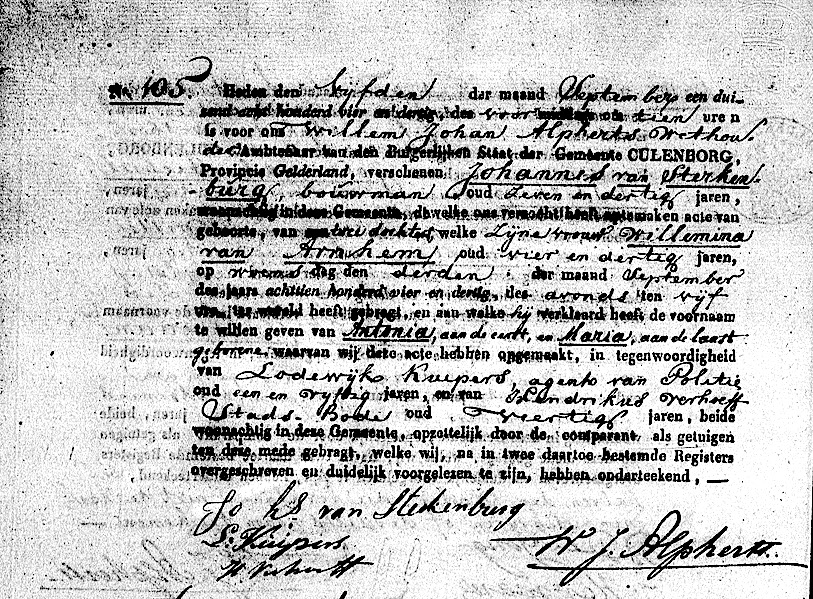 No. 105. Heden den Vijfden der maand September een dui-
zend acht honderd vier en dertig, des voormiddags om tien uren
is voor ons Willem Johan Alpherts Wethou-
der Ambtenaar van den Burgerlijken Staat der Gemeente CULENBORG,
Provincie Gelderland, verschenen Johannes van Sterken-
burg, bouwman oud Zeven en dertig jaren,
woonachtig in deze Gemeente, dewelke ons verzocht heeft optemaken acte van
geboorte, van twee dochters welke Zijne vrouw Willemina
van Arnhem oud vier en dertig jaren,
op woensdag den derden der maand September
des jaars achttien honderd vier en dertig, des avonds ten vijf
ure, ter wereld heeft gebragt, en aan welke hij verklaard heeft de voornaam
te willen geven van Antonia, aan de eerst, en Maria, aan de laast
geborene waarvan wij deze acte hebben opgemaakt, in tegenwoordigheid
van Lodewijk Kuipers, agent van Politie
oud een en vijftig jaren, en van Hendrikus Verhoeff
Stads-Bode oud veertig jaren, beide
woonachtig in deze Gemeente, opzettelijk door de comparant als getuigen
ten deze mede gebragt, welke wij, na in twee daartoe bestemde Registers
overgeschreven en duidelijk voorgelezen te zijn, hebben onderteekend,—
Jo hs van Sterkenburg
L. Kuijpers
W. J. Alpherts.
H Verhoeff